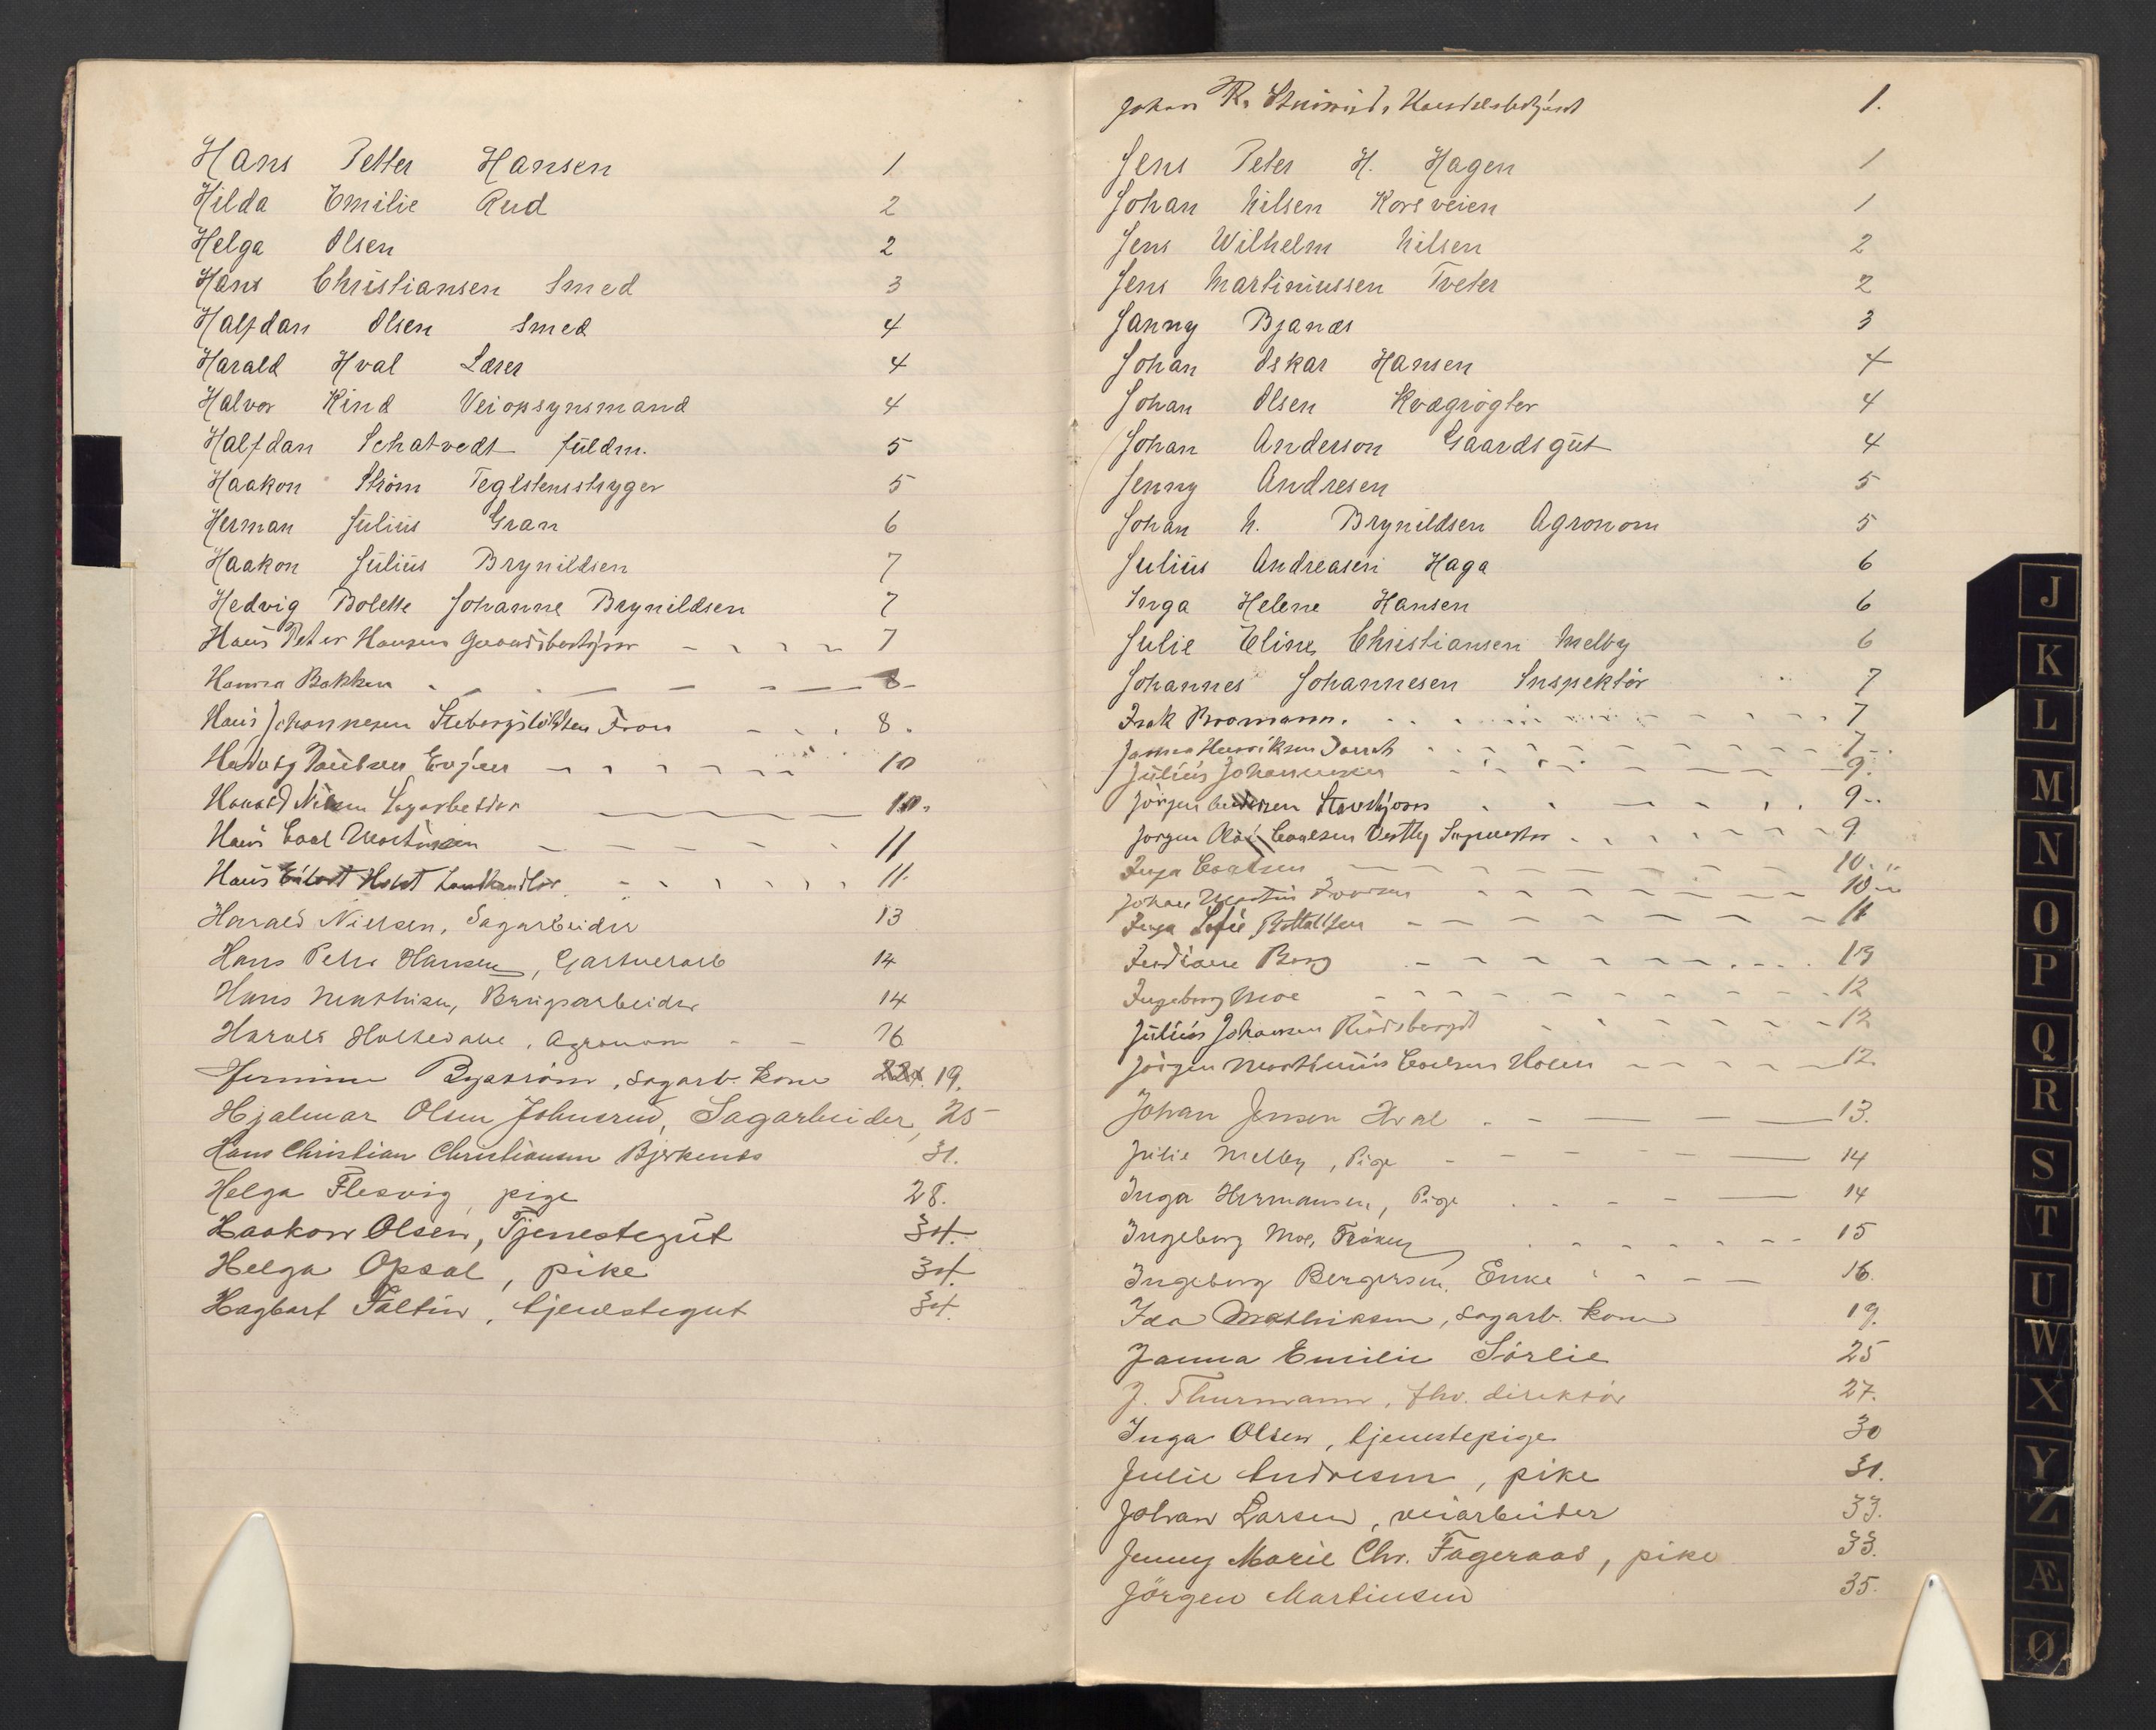 Hans Petter Hansen 1
Hilda Emilie Rud 2
Helga Olsen 2
Hans Christiansen Smed 3
Halfdan Olsen Smed 4
Harald Hval Lærer 4
Halvor Kind Veiopsynsmand 4
Halfdan Schatvedt fuldm. 5
Haakon Strøm Teglstensstryger 5
Herman Julius Gran 6
Haakon Julius Brynildsen 7
Hedvig Bolette Johanne Brynildsen 7
Hans Peter Hansen 7
Hanna Bakken 8
Hans Johannesen 8.
10
Harald Nilsen Sagarbeider 10.
Hans Carl 11
Hans Holst Landhandler 11.
Harald Nielsen, Sagarbeider 13
Hans Petter Hansen, Gartnerarb 14
Hans Mathisen, Brugsarbeider 14
Harald, Agronom 16
Byström, Sagarb. kone 19.
Hjalmar Olsen Johnsrud, Sagarbeider, 25
Hans Christian Christiansen Bjerkenes 31.
Helga Flesvig, pige 28.
Haakon Olsen, Tjenestegut 34.
Helga Opsal, pike 34.
Hagbart Faltin, tjenestegut 34.
Johan R. 1.
Jens Peter H. Hagen 1
Johan Nilsen Korsveien 1
Jens Wilhelm Nilsen 2
Jens Martiniussen Tveter 2
Janny Bjanæs 3
Johan Oskar Hansen 4
Johan Olsen Kvægrøgter 4
Johan Anderson Gaardsgut 4
Jenny Andresen 5
Johan N. Brynildsen Agronom 5
Julius Andreasen Haga 6
Inga Helene Hansen 6
Julie Eline Christiansen Melby 6
Johannes Johannesen Inspektör 7
Isak Bromann. 7
Henriksen 7
Julius Johannesen 9.
Jörgen 9
Jørgen Carlsen 9
Inga Carlsen 10.
Johan Martin 10
Inga Sofie 11
Berg 13
Ingeborg Moe 12
Julius Johansen 12
Jörgen Carlsen Holen 12.
Johan Jensen Hval 13.
Julie Melby, Pige 14
Inga Hermansen, Pige 14
Ingeborg Moe, Frøken 15
Ingeborg Bergersen, Enke 16.
Ida Mathiksen, Sagarb. kone 19.
Janna Emilie Sörlie 25
J. Thurmann, fhv. direktör 27.
Inga Olsen, tjenestepige 30
Julie Andresen, pike 31.
Johan Larsen, veiarbeider 33.
Jenny Marie Chr. Fageraas, pike 33.
Jörgen Martinsen 35.
J
K
L
M
N
O
P
Q
R
S
T
U
W
X
Y
Z
Æ
Ø